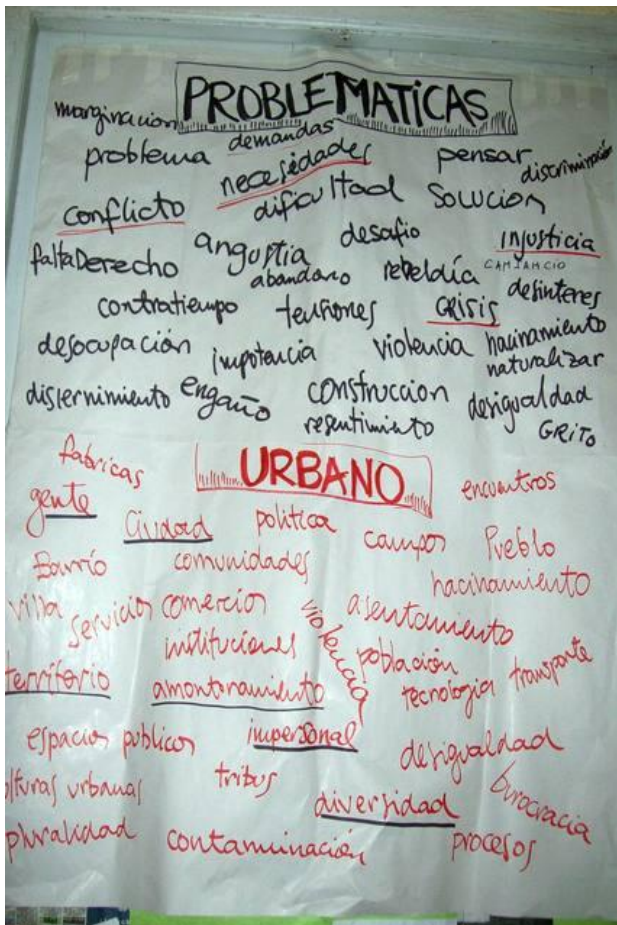 PROBLEMATICAS
marginacion demandas
problema necesidades pensar discriminación
conflicto dificultad Solucion
falta Derecho angustia desafio injusticia
abandono rebeldía CANSANCIO
contratiempo tensiones CRISIS desinteres
desocupación impotencia violencia hacinamiento
naturalizar
discernimiento engaño construccion desigualdad
resentimiento GRITO
fabricas URBANO encuentros
gente Ciudad politica campos Pueblo
Barrio comunidades hacinamiento
villa servicios comercios violencia asentamiento
instituciones población transporte
territorio amontonamiento tecnologia
espacios publicos impersonal desigualdad
lturas urbanas tribus diversidad burocracia
pluralidad contaminación procesos